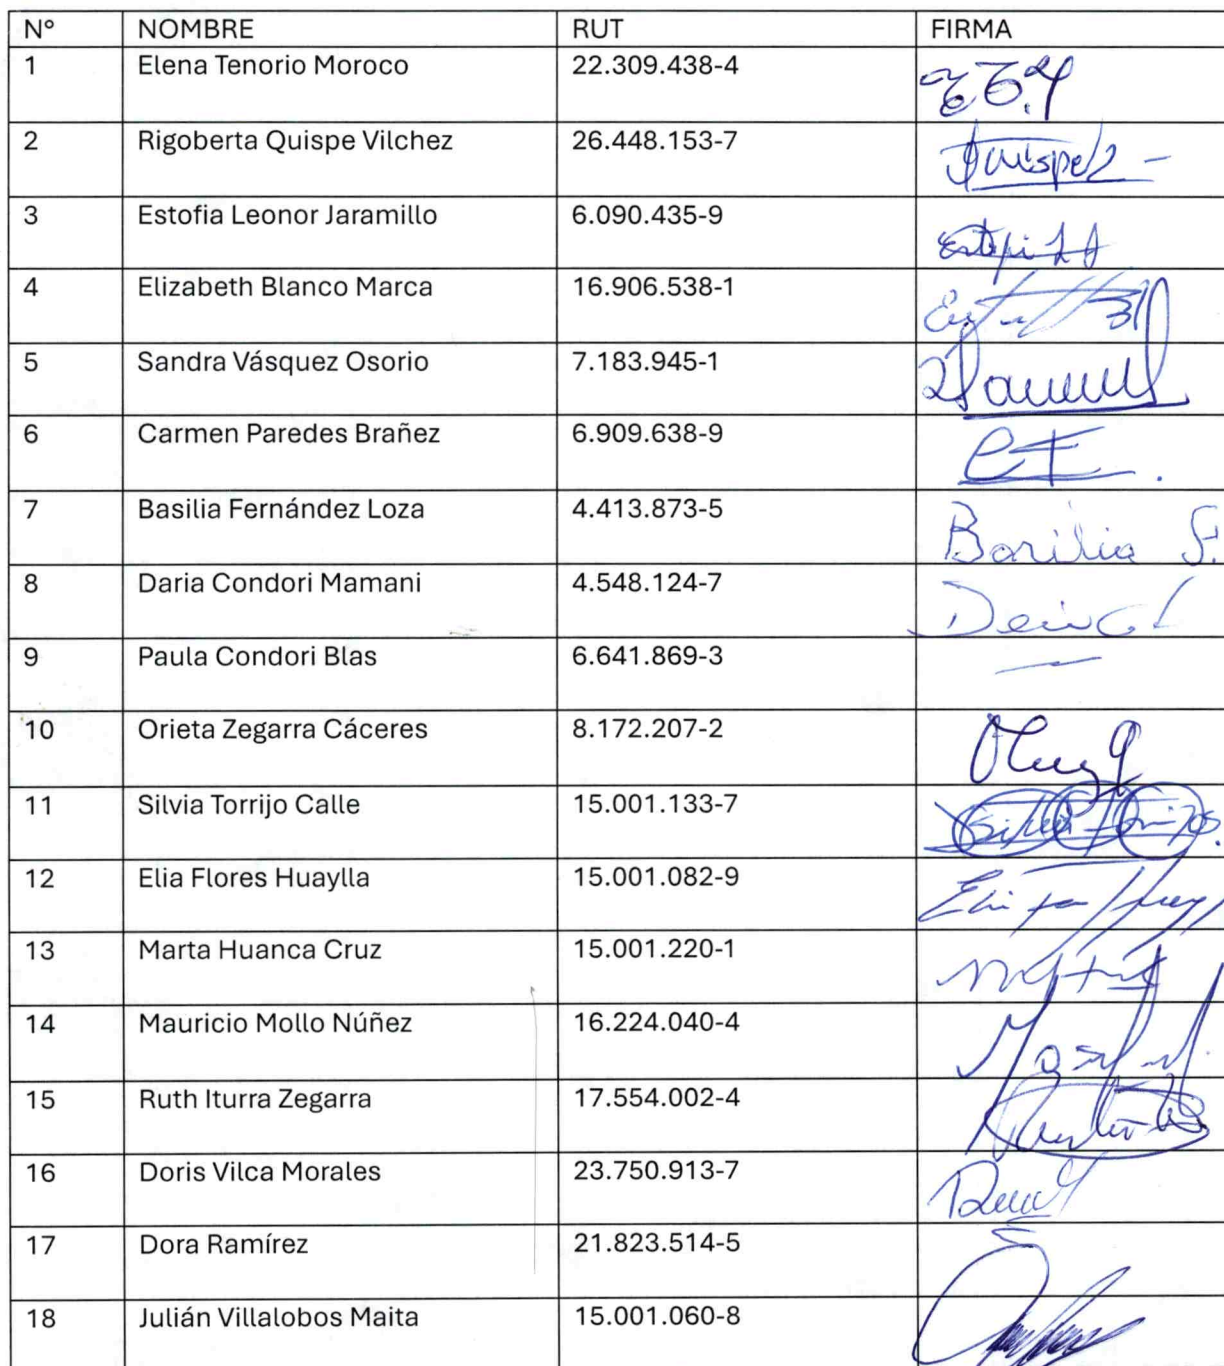 N° NOMBRE RUT FIRMA
1 Elena Tenorio Moroco 22.309.438-4
2 Rigoberta Quispe Vilchez 26.448.153-7
3 Estofia Leonor Jaramillo 6.090.435-9
4 Elizabeth Blanco Marca 16.906.538-1
5 Sandra Vásquez Osorio 7.183.945-1
6 Carmen Paredes Brañez 6.909.638-9
7 Basilia Fernández Loza 4.413.873-5
8 Daria Condori Mamani 4.548.124-7
9 Paula Condori Blas 6.641.869-3
10 Orieta Zegarra Cáceres 8.172.207-2
11 Silvia Torrijo Calle 15.001.133-7
12 Elia Flores Huaylla 15.001.082-9
13 Marta Huanca Cruz 15.001.220-1
14 Mauricio Mollo Núñez 16.224.040-4
15 Ruth Iturra Zegarra 17.554.002-4
16 Doris Vilca Morales 23.750.913-7
17 Dora Ramírez 21.823.514-5
18 Julián Villalobos Maita 15.001.060-8